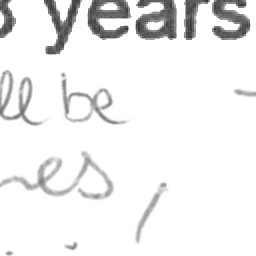 years
ll be
nes,